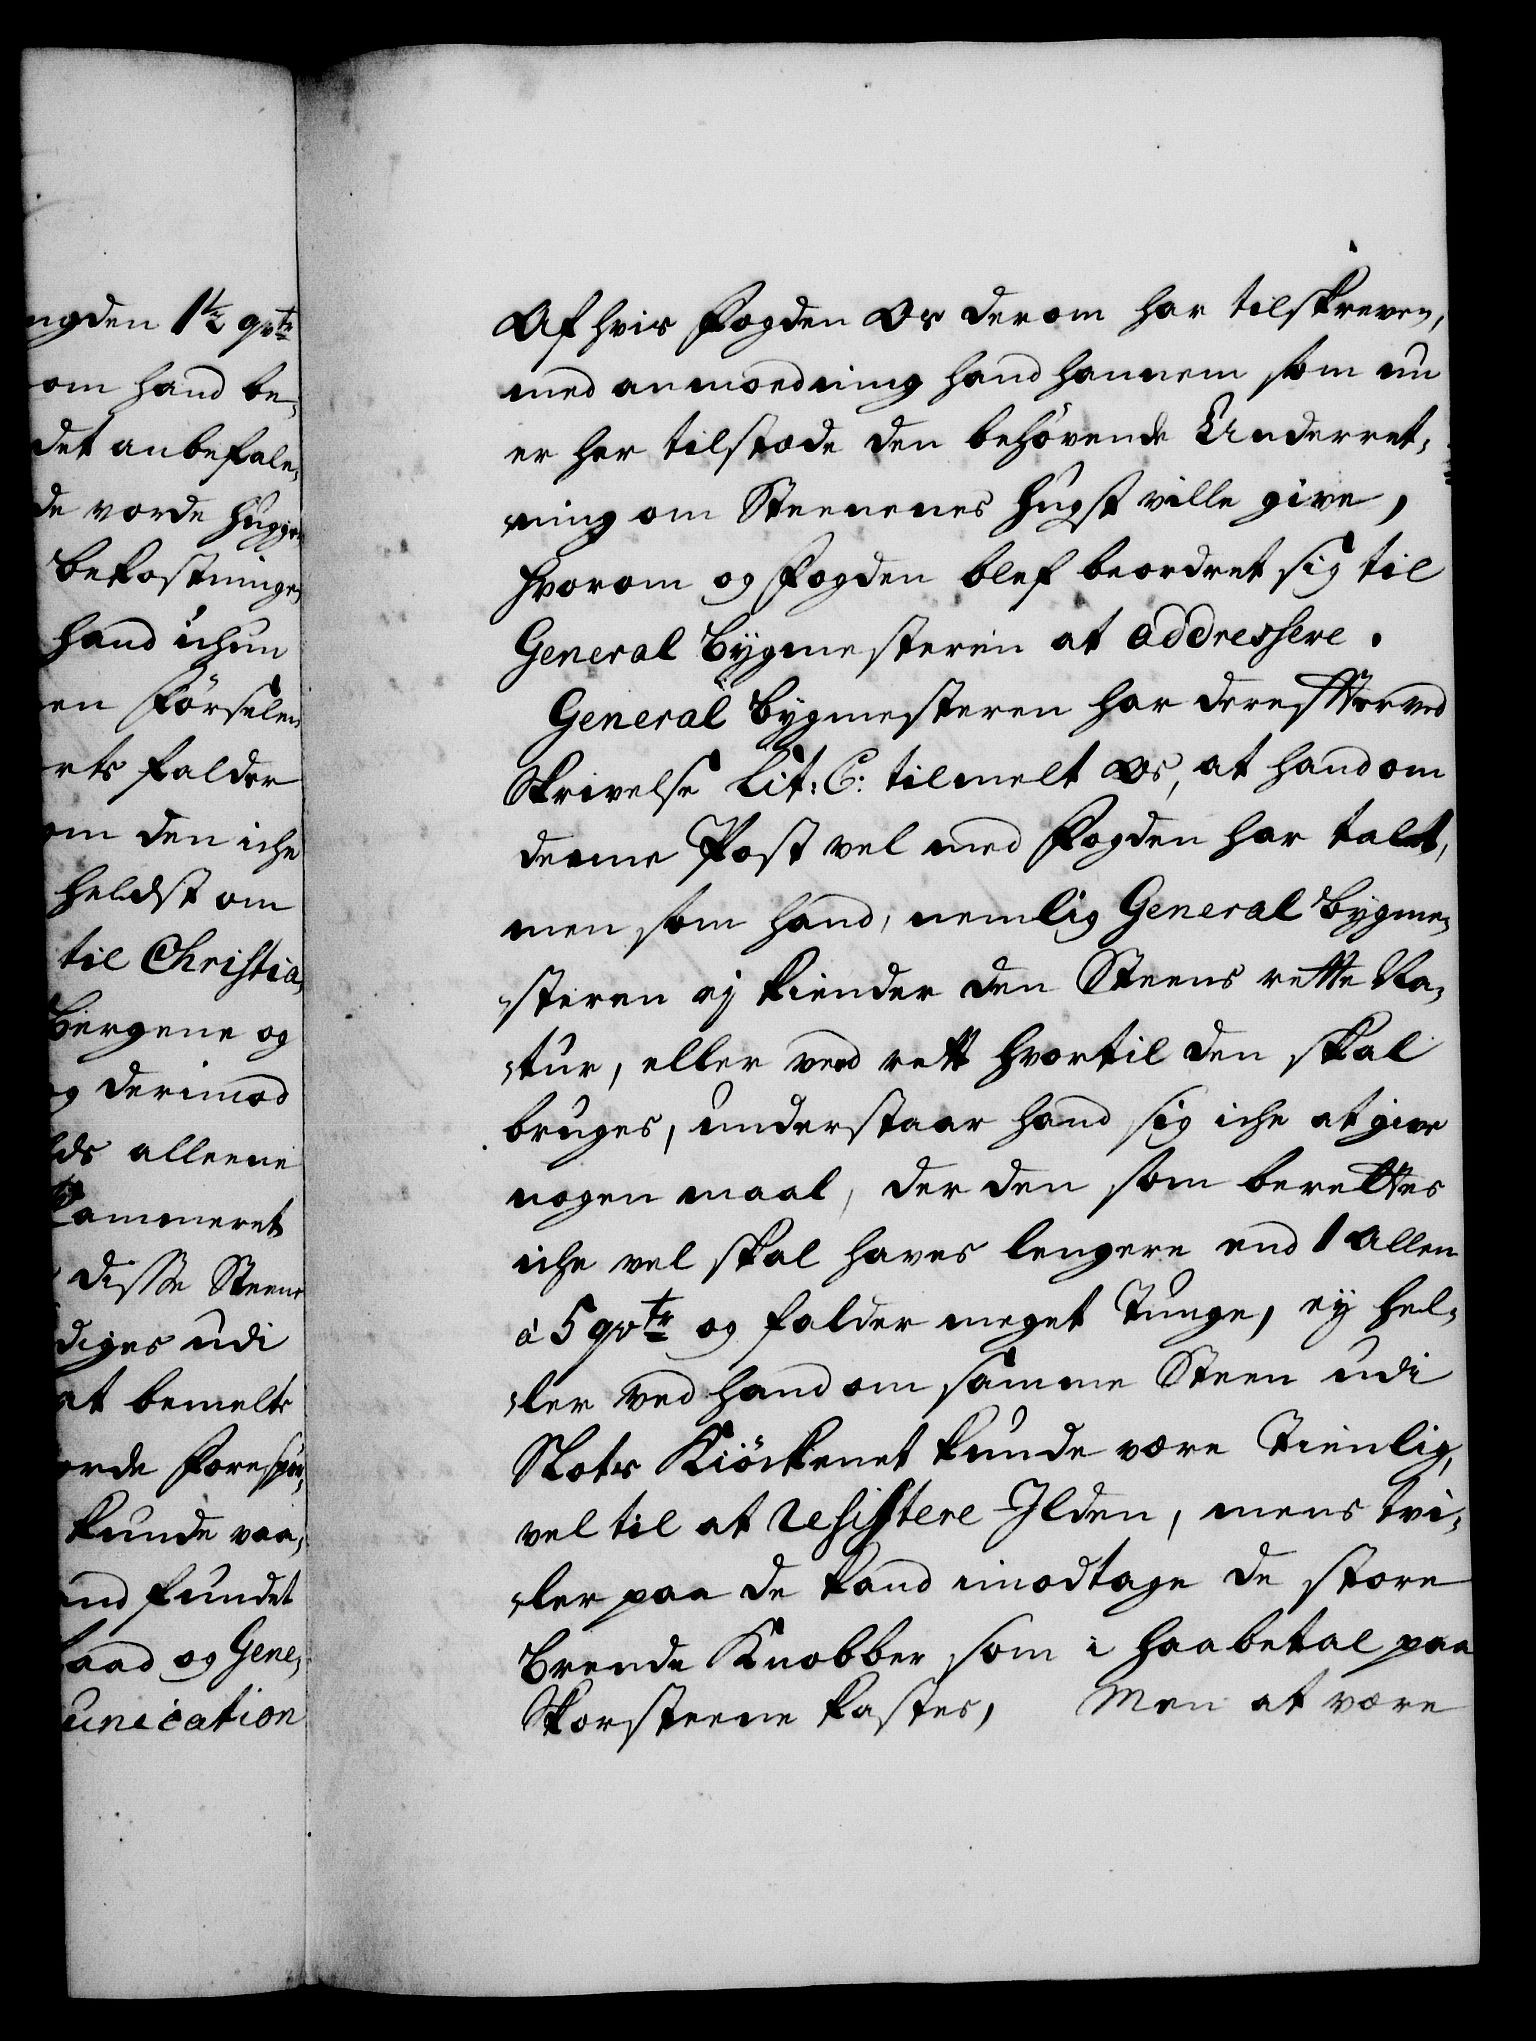 ngden 1½ qvtr
om hand be,
det anbefale,
de vorde hugge
bekostninge,
hand ichun
en Førselen
rts falder
om den iche
heldst om
til Christia,
Bergene og
og derimod
lds alleene
Kammeret
disse Steene
diges udi
at bemelte
orde Forespør,
kunde vaa,
ind fundet
aad og Gene,
unication
Af hvis Fogden Os derom har tilskreven,
med anmoedning hand hannem som nu
er her tilstæde den behøvende Underret,
,ning om Steenenes hugst ville give,
hvorom og Fogden blef beordret sig til
General Bygmesteren at addressere.
General Bygmesteren har derefter ved
Skrivelse Lit: C: tilmelt Os, at hand om
denne Post vel med Fogden har talt,
men som hand, nemlig General Bygme,
,steren ej kiender den Steens rette Na,
,tur, eller veed rett hvortil den skal
bruges, understaar hand sig iche at give
nogen maal, der den som berettes
iche vel skal haves lengere end 1 Allen
à 5 qvtr og falder meget Tunge, ey hel,
,ler ved hand om samme Steen udi
Slots Kiøckenet kunde være Tienlig,
vel til at resistere Ilden, mens tvi,
,ler paa de kand imodtage de store
Brende Knobber som i haabetal paa
Skorsteene kastes, Men at være